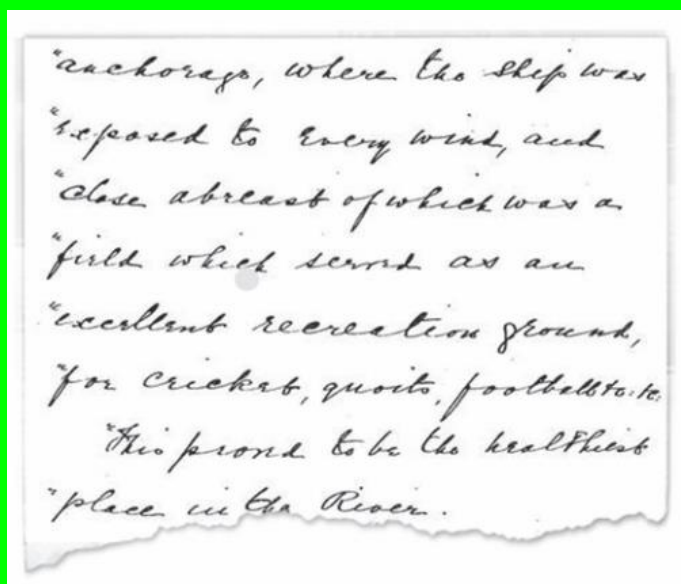 "anchorage, where the ship was
"exposed to every wind, and
"close abreast of which was a
"field which served as an
"excellent recreation ground,
"for cricket, quoits, football &c: &c:
"This proved to be the healthiest
"place in the River.